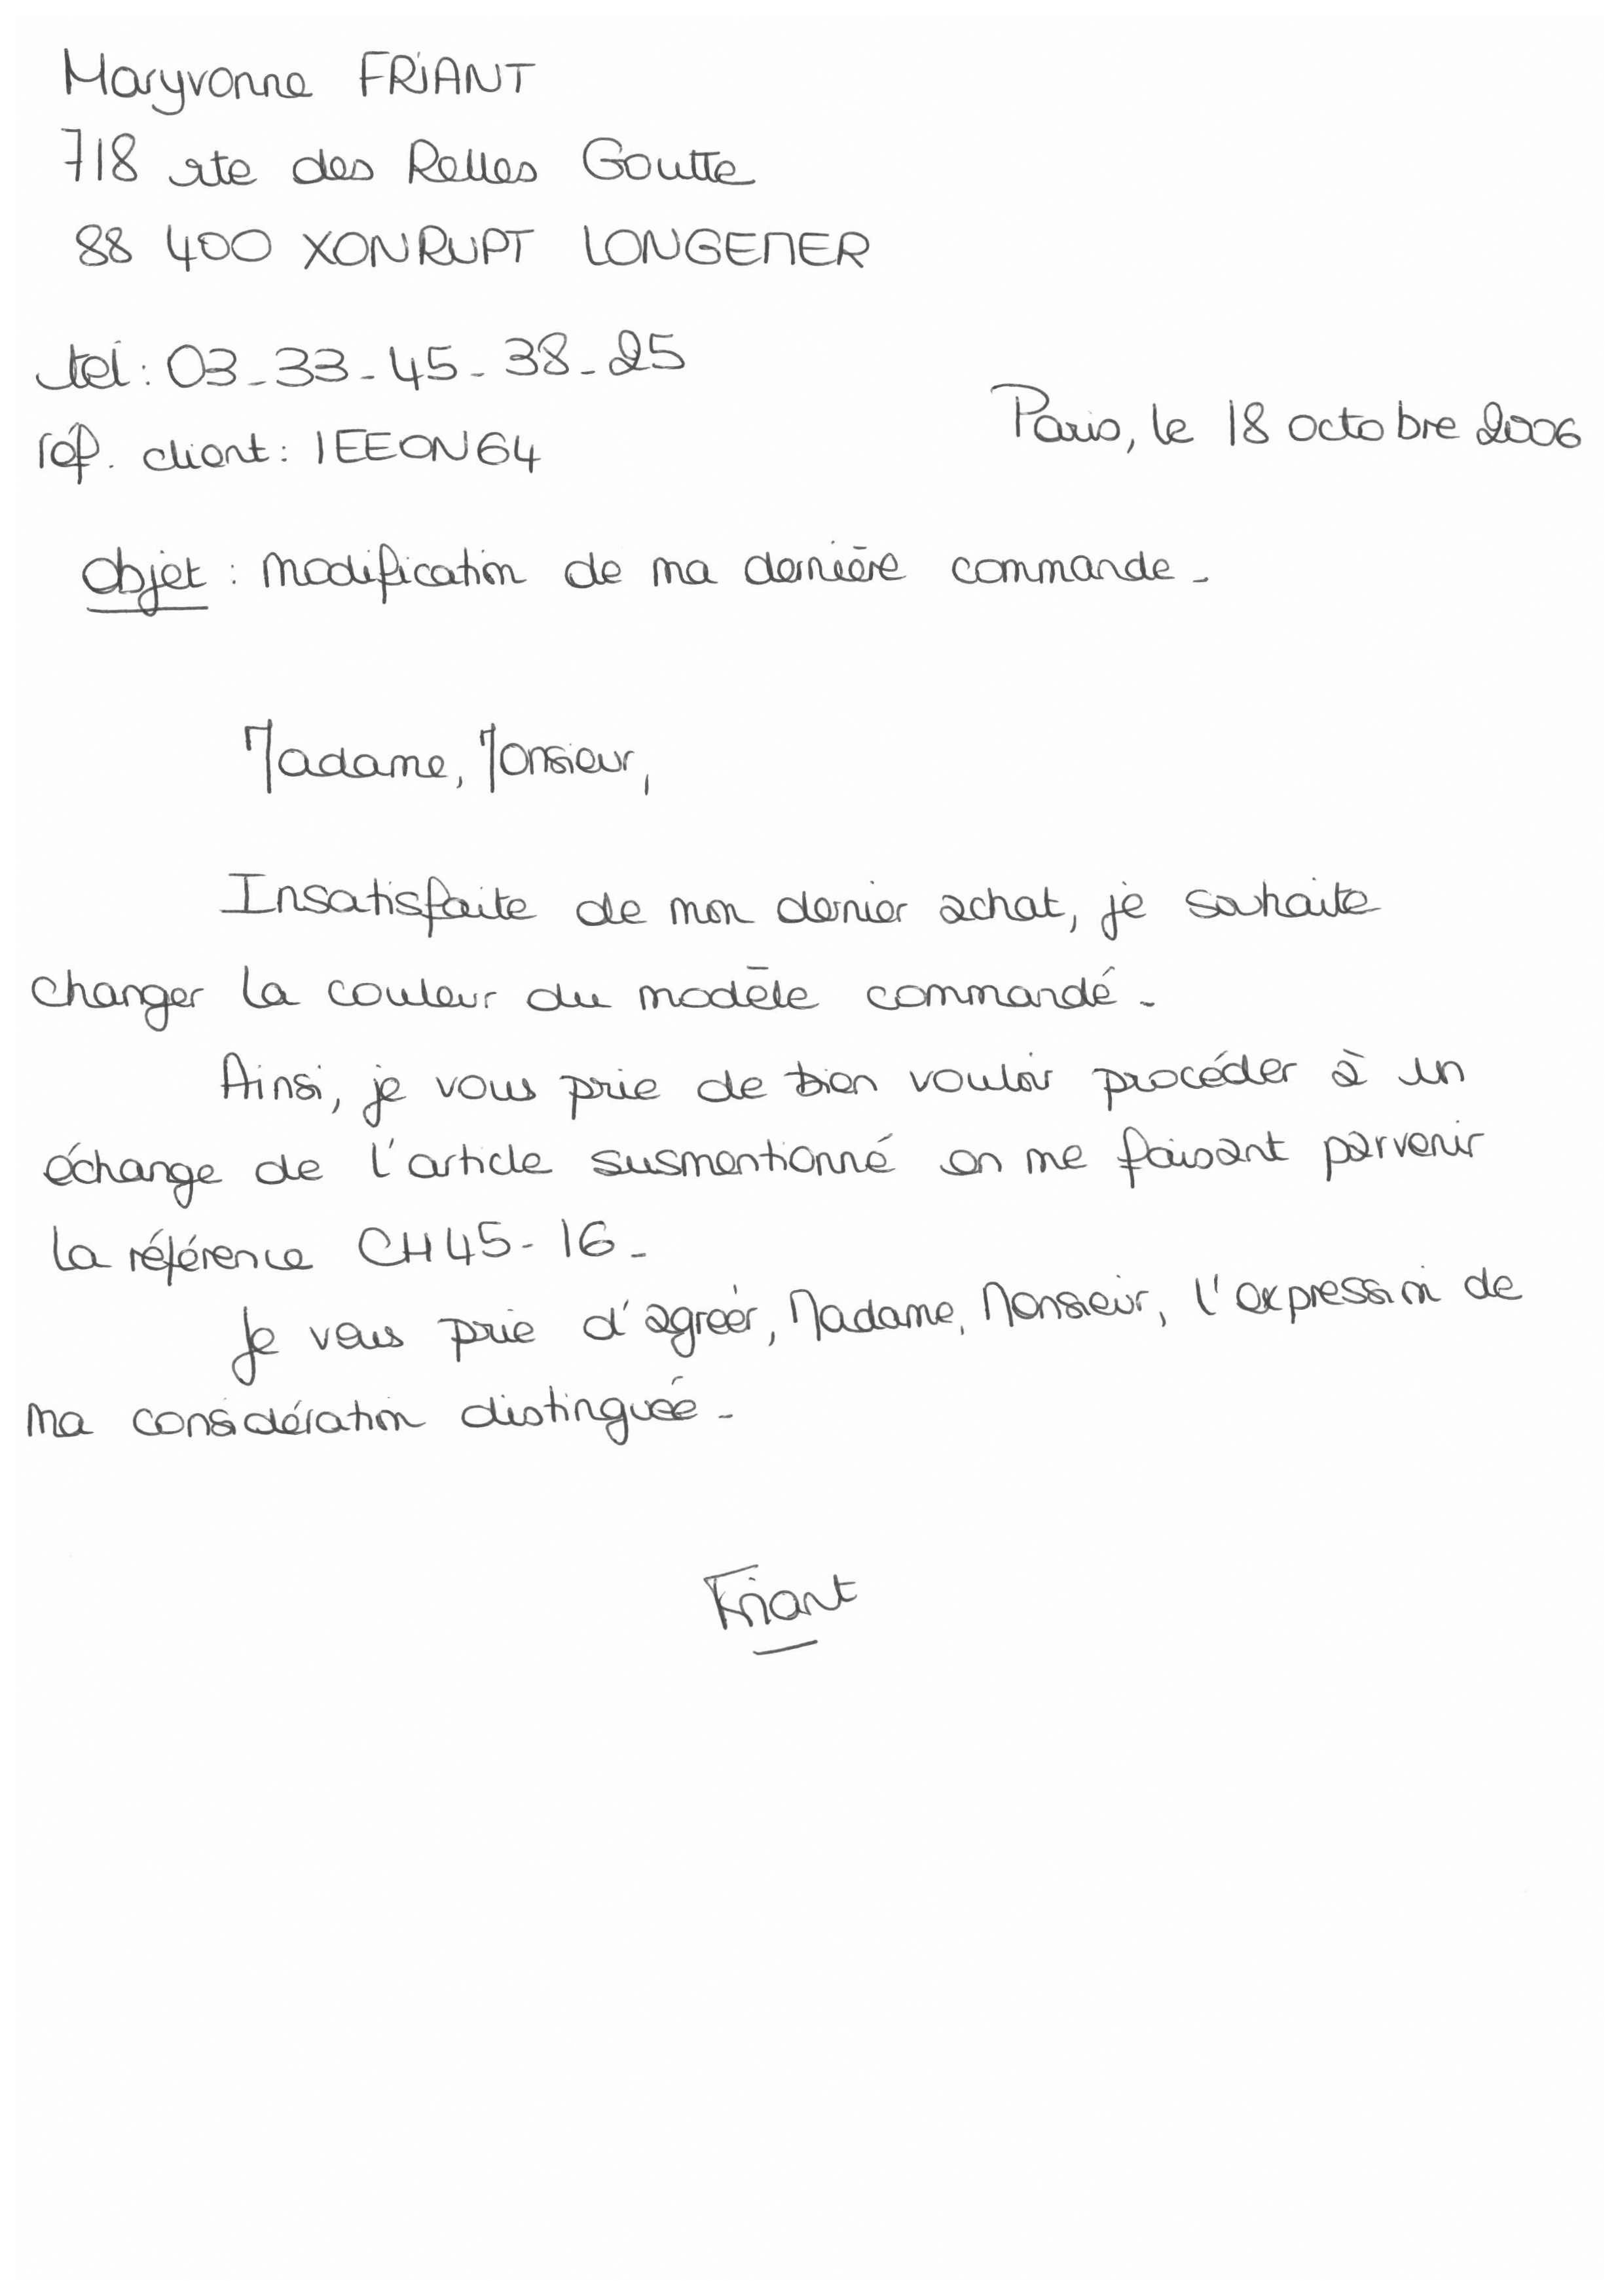 Maryvonne FRIANT
718 rte des Relles Goutte
88 400 XONRUPT LONGEMER
tel : 03_33_45_38_25
Paris, le 18 octobre 2006
réf. client : IEEON64
Objet : modification de ma dernière commande.
Madame, Monsieur,
Insatisfaite de mon dernier achat, je souhaite
changer la couleur du modèle commandé.
Ainsi, je vous prie de bien vouloir procéder à un
échange de l'article susmentionné en me faisant parvenir
la référence CH45-16.
Je vous prie d'agréer, Madame, Monsieur, l'expression de
ma considération distinguée.
Friant